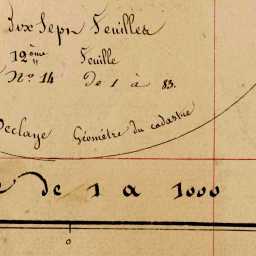 Dix Sept Feuilles
12ème Feuille
No. 14 De 1 à 83.
Declaye Géomètre du cadastre
de 1 a 1000
0